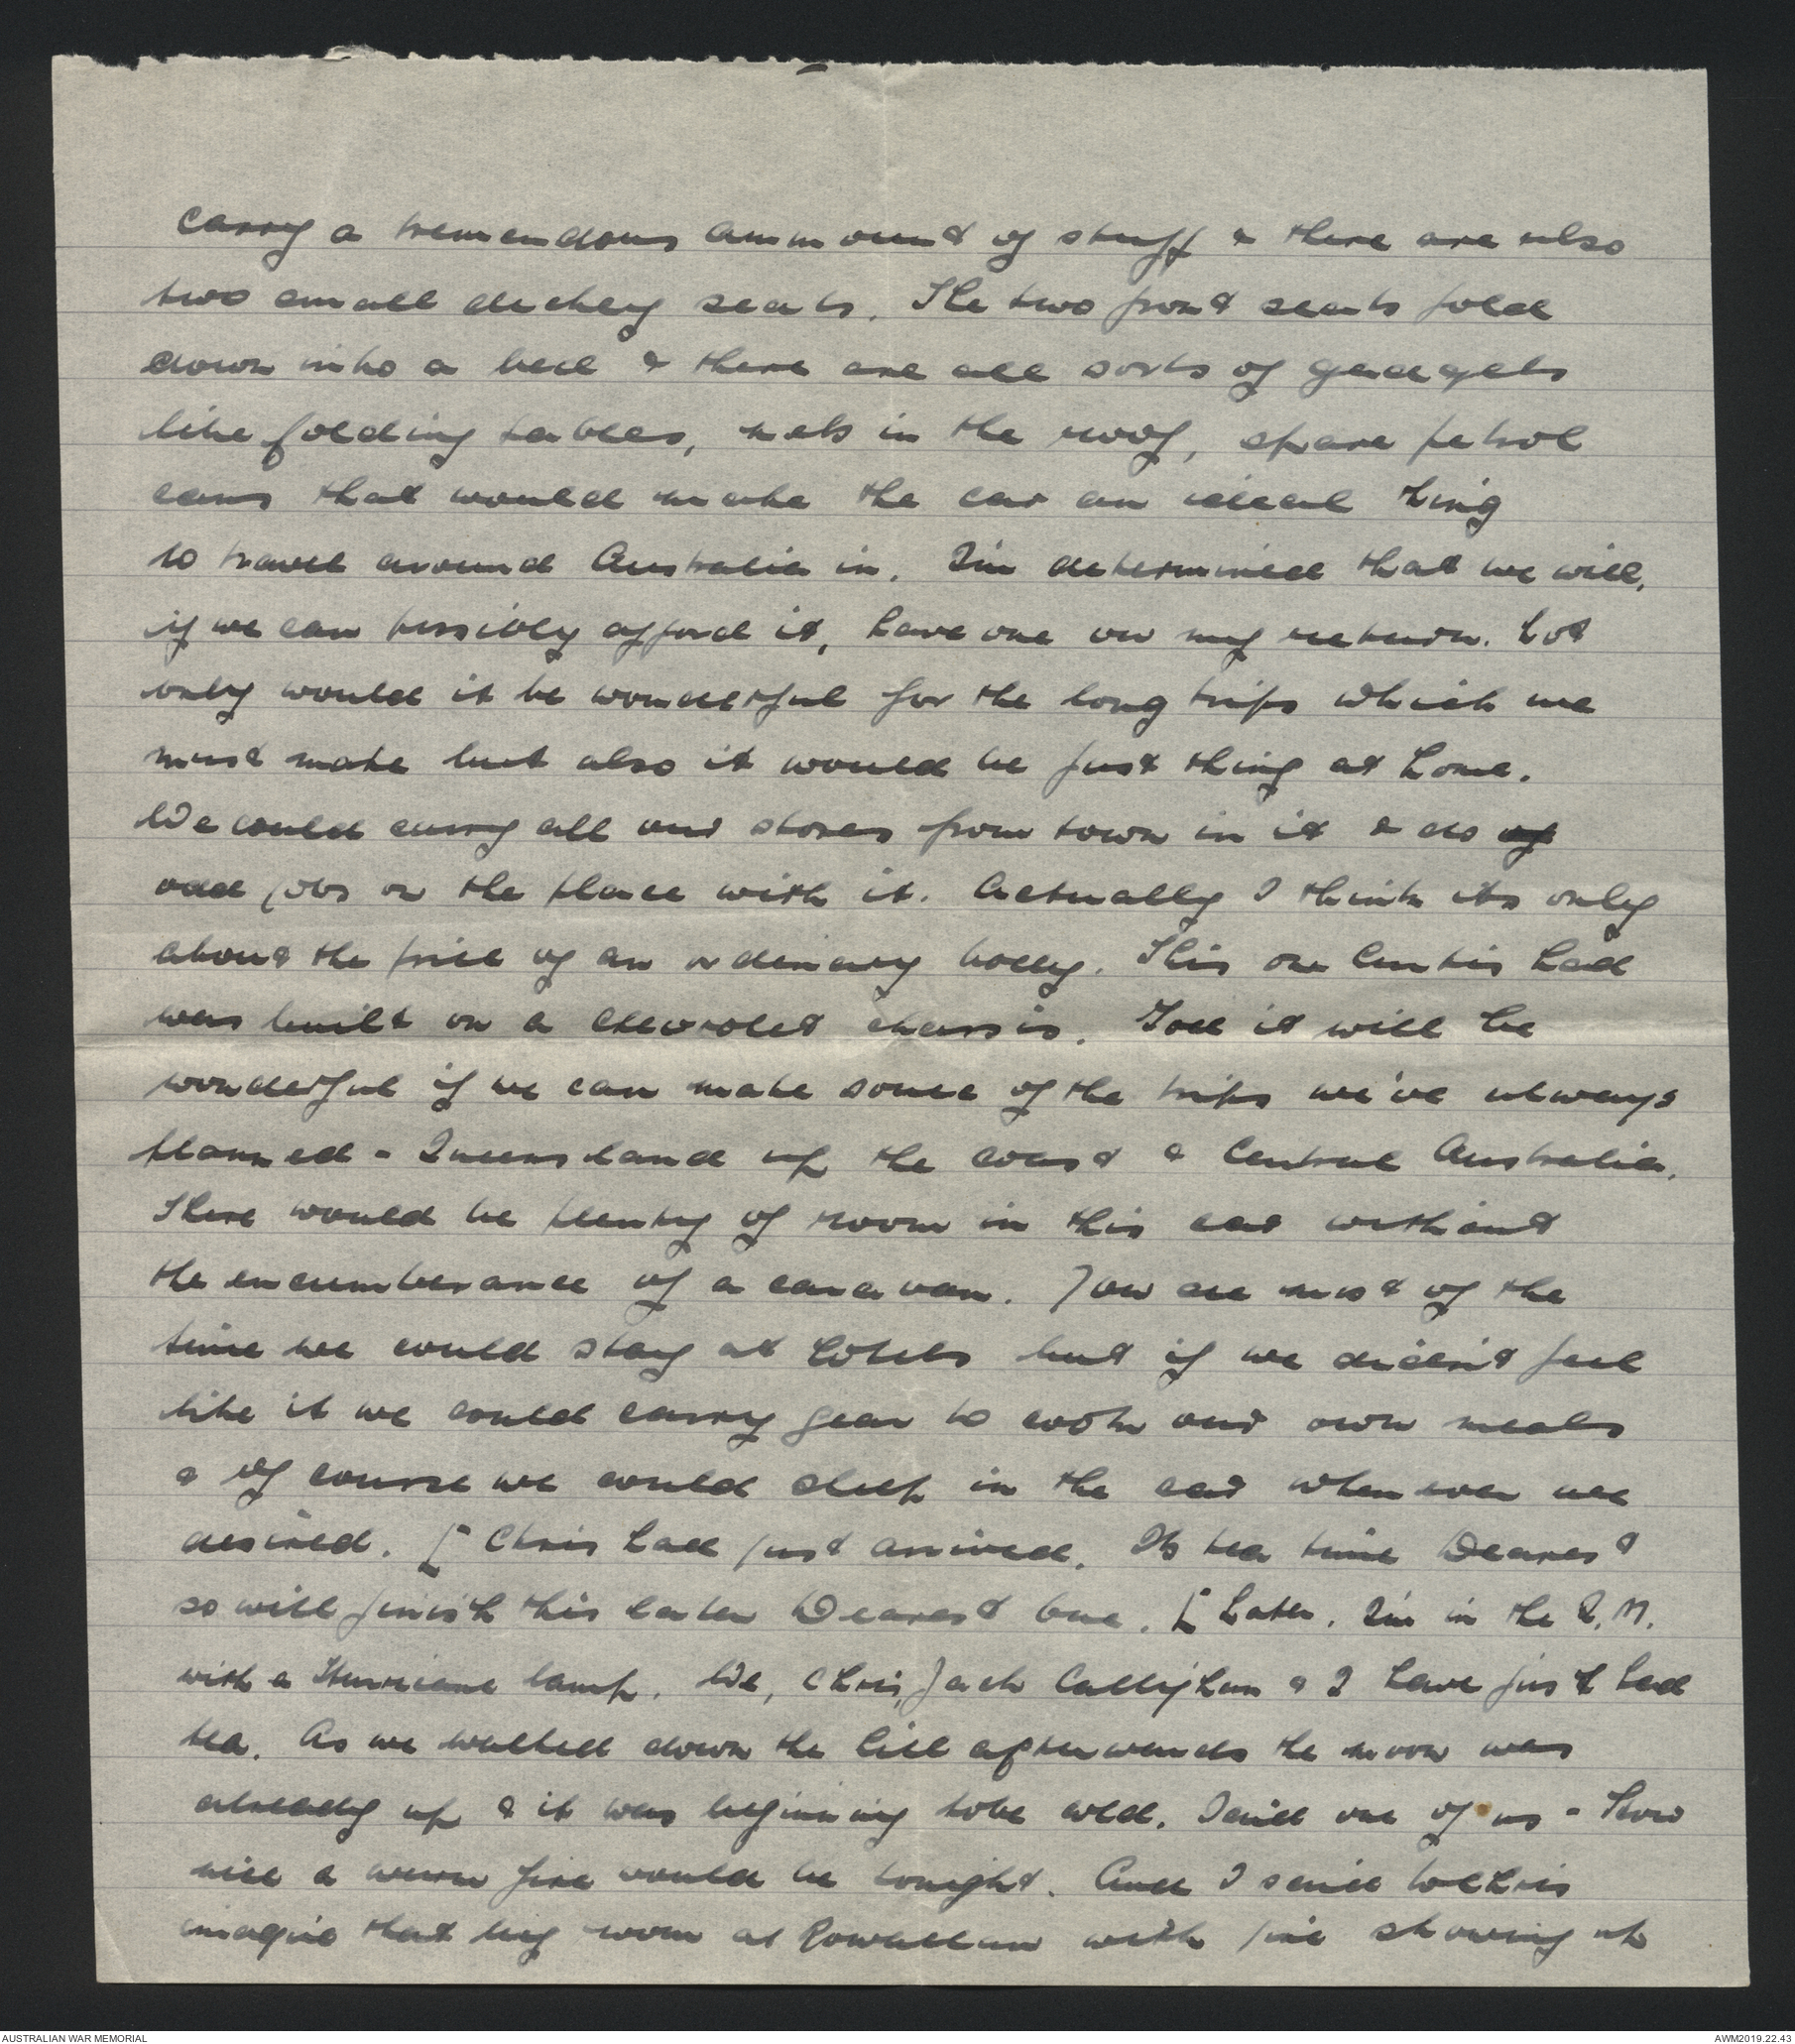 carry a tremendous ammount of stuff & there are also
two small dickey seats. The two front seats fold
down into a bed & there are all sorts of gadgets
like folding tables, nets in the roof, spare petrol
cans that would make the car an ideal thing
to travel around Australia in. I'm determined that we will,
if we can possibly afford it, have one on my return. Not
only would it be wonderful for the long trips which we
must make but also it would be just thing at home.
We could carry all our stores from town in it & do
odd jobs on the place with it. Actually I think its only
about the price of an ordinary body. This one Curtis had
was built on a Chevrolet chassis. God it will be
wonderful if we can make some of the trips we've always
planned - Queensland up the coast & Central Australia.
There would be plenty of room in this car without
the encumberance of a caravan. For most of the
time we could stay at hotels but if we didn't feel
like it we could carry gear to cook our own meals
& of course we could sleep in the car whenever we
desired. [ Chris had just arrived. Its tea time Dearest
so will finish this later Dearest One. [ Later. I'm in the Q.M.
with a Hurricane lamp. We, Chris, Jack Callighan & I have just had
tea. As we walked down the hill afterwards the moon was
already up & it was beginning to be cold. Said one of us - How
nice a warm fire would be tonight. And I said to Chris
imagine that big room at Rowallan with fire showing up
AUSTRALIAN WAR MEMORIAL
AWM2019.22.43